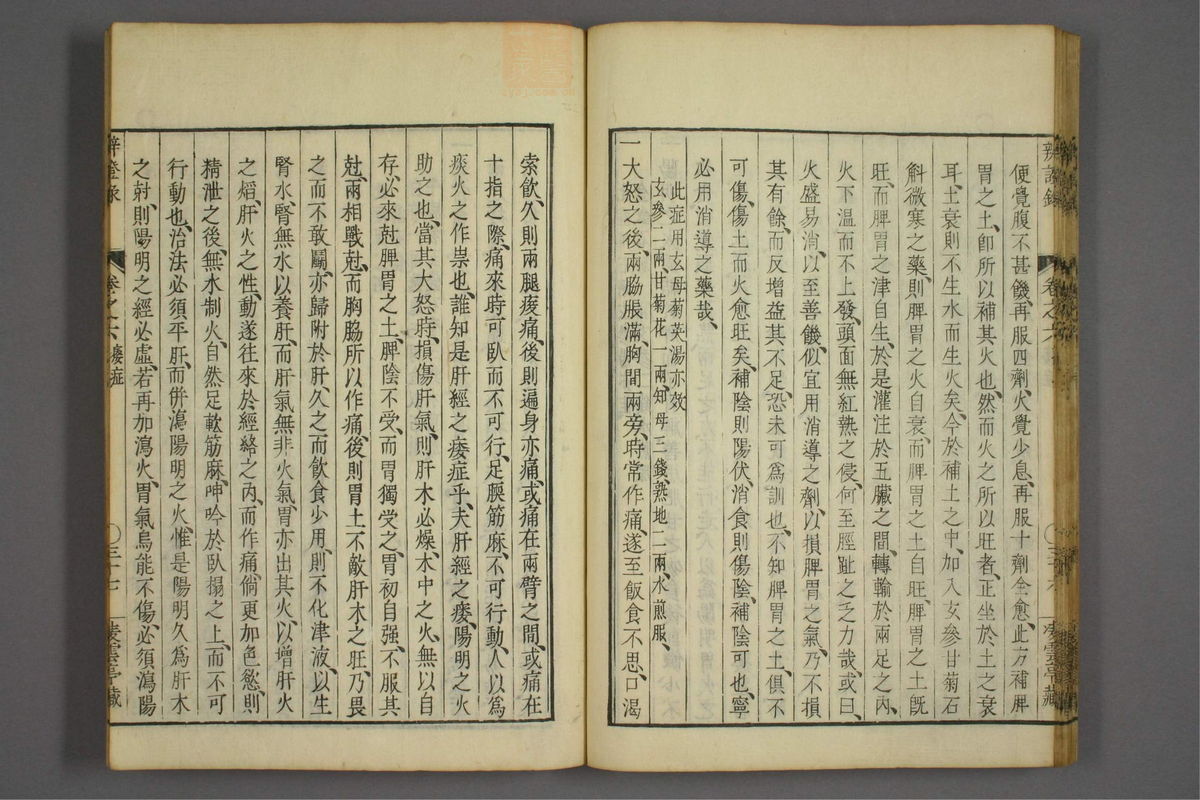 便覺腹不甚饑、再服四劑、火覺少息、再服十劑全愈、此方補脾
胃之土、卽所以補其火也、然而火之所以旺者、正坐於土之衰
耳、土衰則不生水而生火矣、今於補土之中、加入玄參甘菊石
斛微寒之藥、則脾胃之火自衰、而脾胃之土自旺、脾胃之土旣
旺、而脾胃之津自生、於是灌注於五臟之間、轉輸於兩足之內、
火下溫而不上發、頭面無紅熱之侵、何至脛趾之乏力哉、或曰、
火盛易消、以至善饑、似宜用消導之劑、以損脾胃之氣、乃不損
其有餘、而反增益其不足、恐未可爲訓也、不知脾胃之土、俱不
可傷、傷土而火愈旺矣、補陰則陽伏、消食則傷陰、補陰可也、寧
必用消導之藥哉、
此症用玄母菊英湯亦效
玄參二兩、甘菊花一兩、知母三錢、熟地二兩、水煎服、
一大怒之後、兩脇脹滿、胸間兩旁、時常作痛、遂至飯食不思、口渴
索飲、久則兩腿痠痛、後則遍身亦痛、或痛在兩臂之間、或痛在
十指之際、痛來時可臥而不可行、足腰筋麻、不可行動、人以爲
痰火之作祟也、誰知是肝經之痿症乎、夫肝經之痿、陽明之火
助之也、當其大怒時、損傷肝氣、則肝木必燥、木中之火、無以自
存、必來尅脾胃之土、脾陰不受、而胃獨受之、胃初自强、不服其
尅、兩相戰尅、而胸脇所以作痛、後則胃土不敵肝木之旺、乃畏
之而不敢鬭、亦歸附於肝、久之而飲食少用、則不化津液、以生
腎水、腎無水以養肝、而肝氣無非火氣、胃亦出其火、以增肝火
之熖、肝火之性動、遂往來於經絡之內、而作痛、倘更加色慾、則
精泄之後、無水制火、自然足軟筋麻、呻吟於臥榻之上、而不可
行動也、治法必須平肝、而併瀉陽明之火、惟是陽明久爲肝木
之尅、則陽明之經必虛、若再加瀉火、胃氣烏能不傷、必須瀉陽
辨證錄 卷之六 痿症 三十七 凌雲亭藏